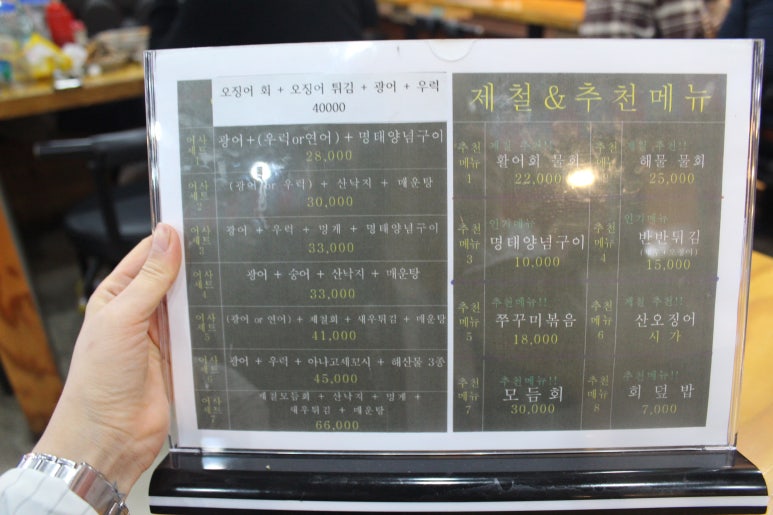 오징어 회 + 오징어 튀김 + 광어 + 우럭
40000
어사
세트
1
광어+(우럭or연어)+명태양념구이
28,000
어사
세트
2
(광어 or 우럭) + 산낙지 + 매운탕
30,000
어사
세트
3
광어 + 우럭 + 멍게 + 명태양념구이
33,000
어사
세트
4
광어 + 숭어 + 산낙지 + 매운탕
33,000
어사
세트
5
(광어 or 연어) + 제철회 + 새우튀김 + 매운탕
41,000
어사
세트
6
광어 + 우럭 + 아나고세꼬시 + 해산물 3종
45,000
어사
세트
7
제철모듬회 + 산낙지 + 멍게 +
새우튀김 + 매운탕
66,000
제철&추천메뉴
추천
메뉴
1
제철 추천!!
활어회 물회
22,000
추천
메뉴
2
제철 추천!!
해물 물회
25,000
추천
메뉴
3
인기메뉴
명태양념구이
10,000
추천
메뉴
4
인기메뉴
반반튀김
15,000
추천
메뉴
5
추천메뉴!!
쭈꾸미볶음
18,000
추천
메뉴
6
제철 추천!!
산오징어
시가
추천
메뉴
7
추천메뉴!!
모듬회
30,000
추천
메뉴
8
추천메뉴!!
회덮밥
7,000